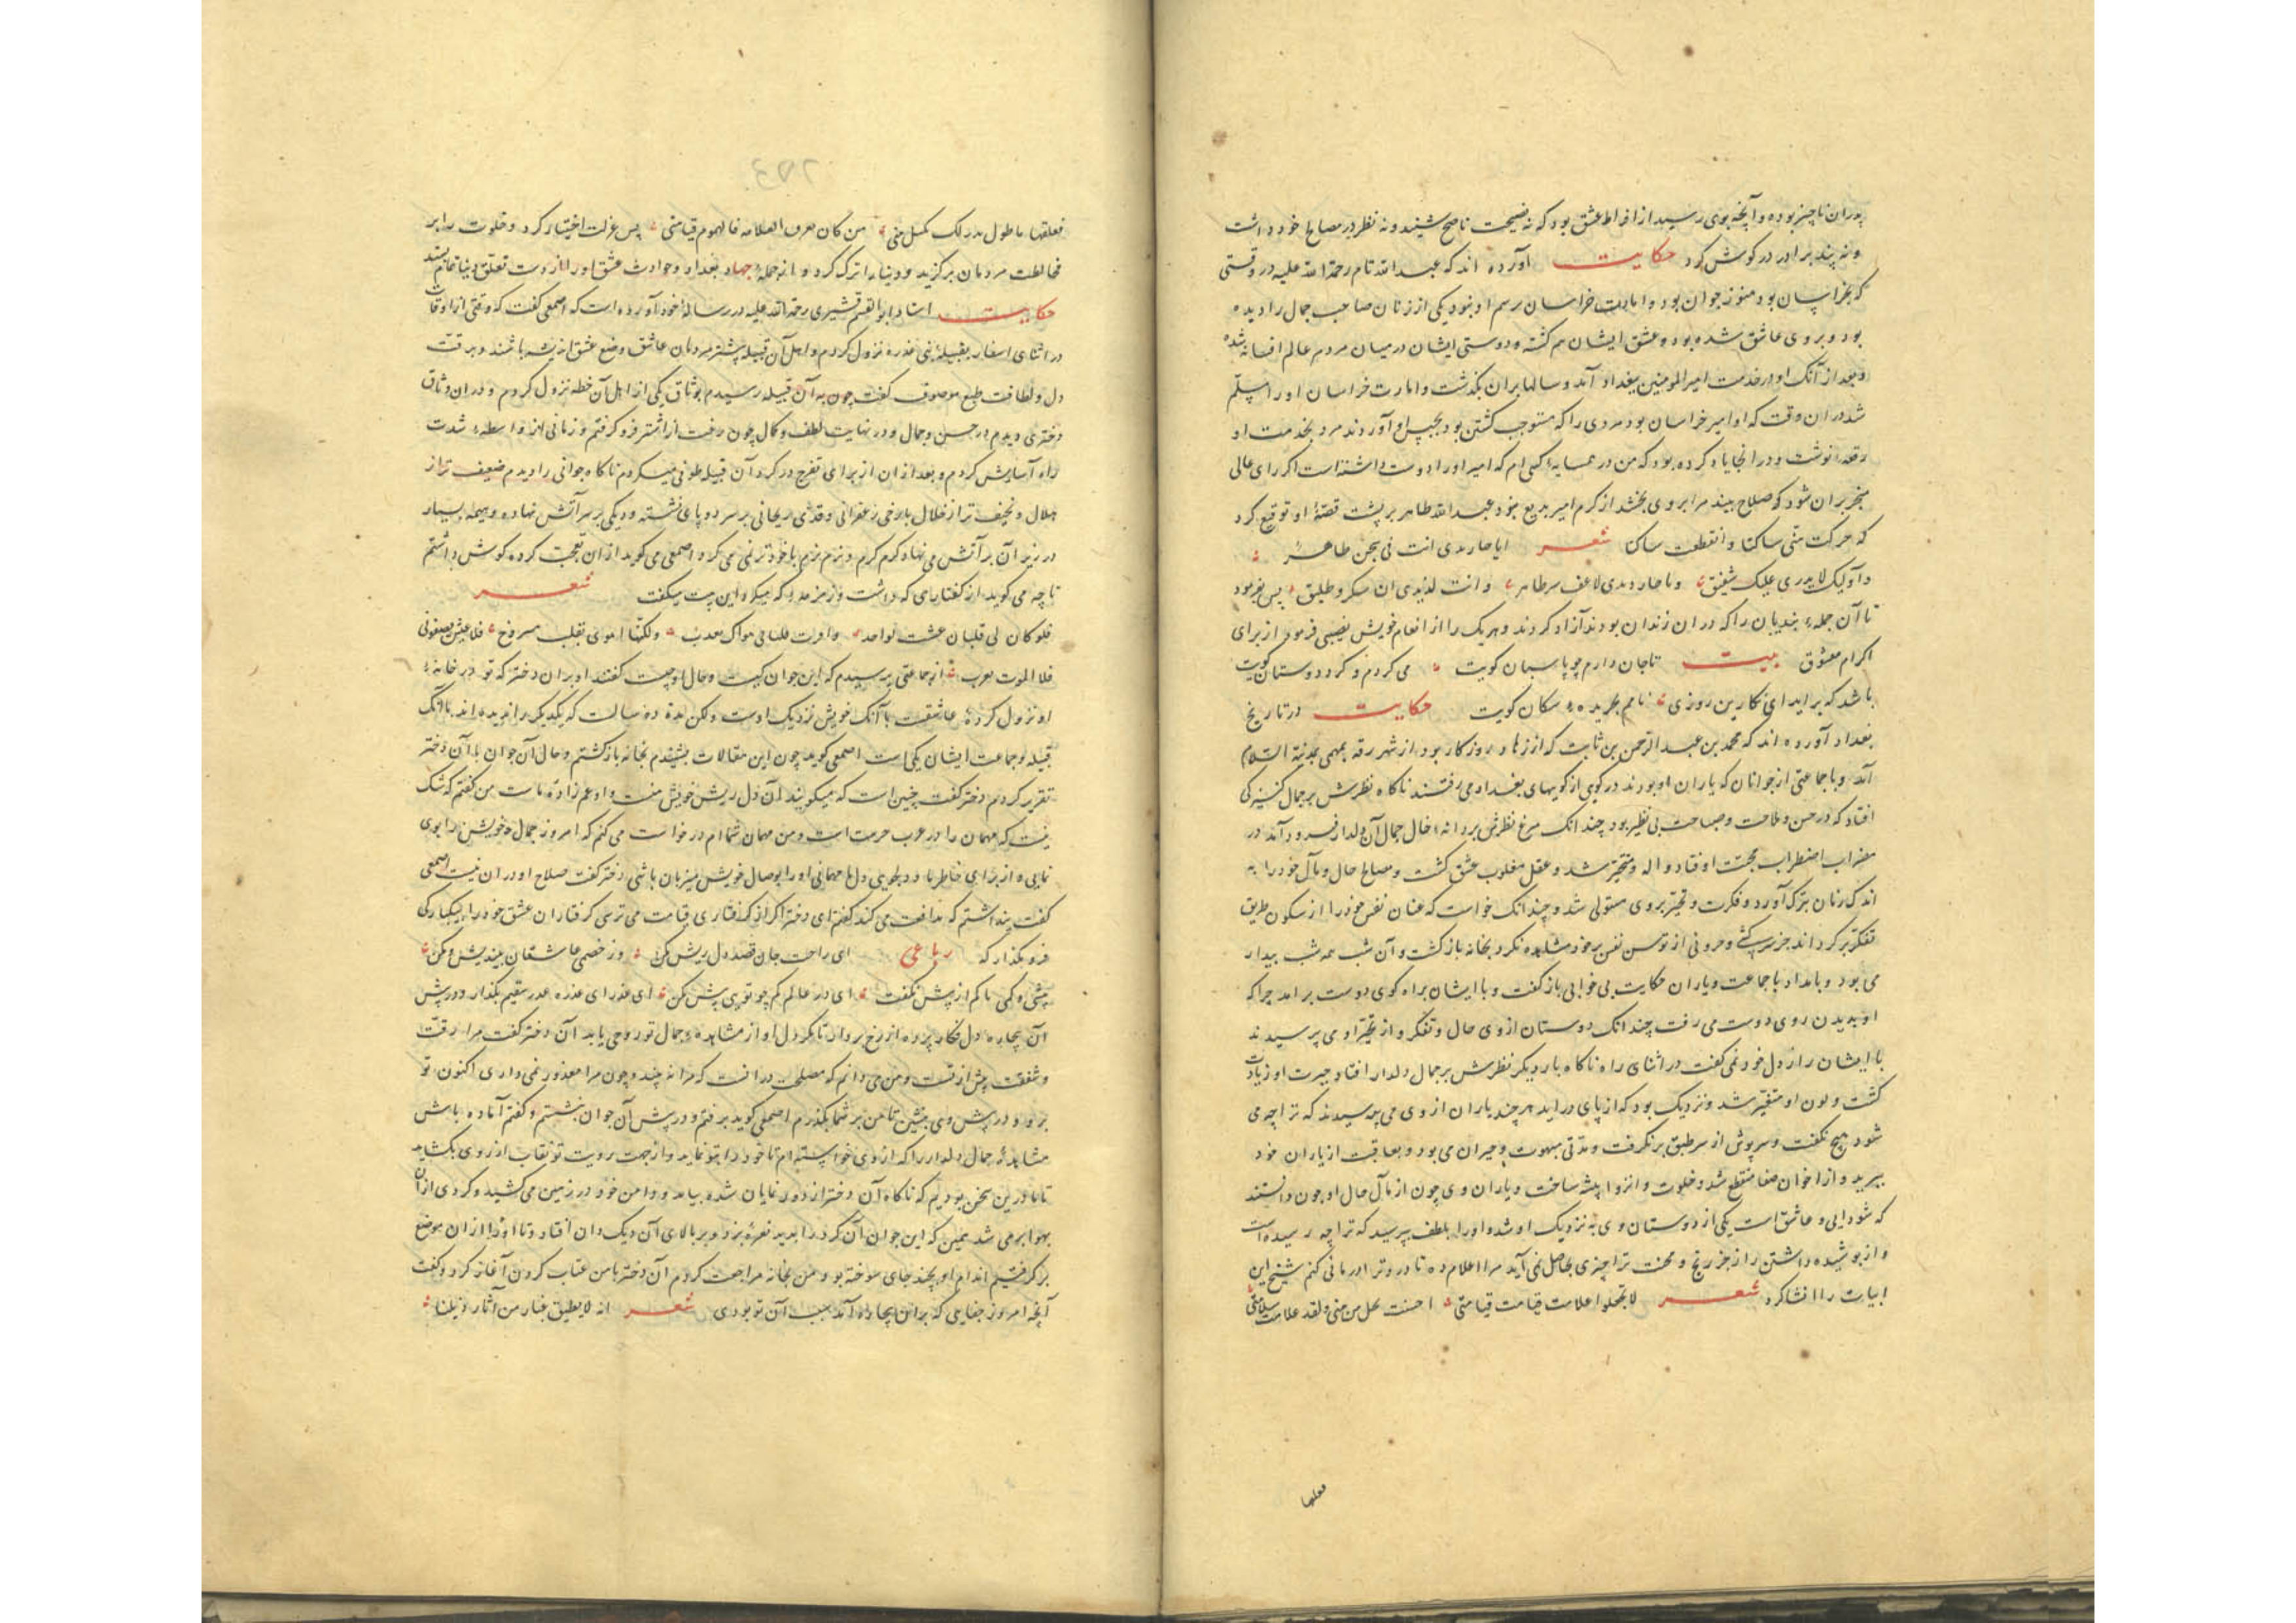 پدران ناچیز بوده و آنچه بوی رسید از افراط عشق بود که نه نصیحت ناصح شنید و نه نظر در مصالح خود داشت
و نه پند برادر در کوش کرد حکایت آورده اند که عبد الله تام رحمة الله علیه در وقتی
که بخراسان بود هنوز جوان بود و امارت خراسان رسم او نبود یکی از زنان صاحب جمال را دیده
بود و بر وی عاشق شده بود و عشق ایشان سم کشته و دوستی ایشان در میان مردم عالم افسانه شده
و بعد از آنک او در خدمت امیر المومنین ببغداد آمد و سالها بران بگذشت و امارت خراسان او را مسلم
شد در ان وقت که او امیر خراسان بود مردی را که مستوجب کشتن بود بحبس او آوردند مرد بخدمت او
رقعه نوشت و در انجا یاد کرده بود که من در همسایهٔ کسی ام که امیر او را دوست داشته است اکر رای عالی
بران شود که صلاح بیند مرا بر وی بخشد از کرم امیر بدیع نبود عبد الله طاهر بر پشت قصهٔ او توقیع کرد
که حرکت منی ساکنا و انقطعت ساکنا شعر ایا جارتی انت فی سجن طاهر
شفیق پس بفرمود
تا آن جملهٔ بندیان را که در ان زندان بودند آزاد کردند و هر یک را از انعام خویش نصیبی فرمود از برای
اکرام معشوق بیت تا جان دارم چو پاسبان کویت می کردم و کرد دوستان کویت
باشد که براید ای نکارین روزی نامم بجریدهٔ سکان کویت حکایت در تاریخ
بغداد آورده اند که محمد بن عبد الرحمن بن ثابت که از زهاد روزکار بود از شهر رقه بمهمی بمدینة السلام
آمد و با جماعتی از جوانان که یاران او بودند در کوی از کویهای بغداد می رفتند ناکاه نظرش بر جمال کنیزکی
افتاد که در حسن و ملاحت و صباحت بی نظیر بود چندانک مرغ نظرش بر دانهٔ خال جمال آن دلدار فرود آمد در
مضراب اضطراب محبت او فتاد و اله و متحیر شد و عقل مغلوب عشق کشت و مصالح حال و مآل خود را به
اندک زمان بترک آورد و فکرت و تحیر بر وی مستولی شد و چندانک خواست که عنان نفس خود را از سکون طریق
تفکر بر کرداند جز سرکشی و حرونی از توسن نفس خود مشاهده نکرد بخانه بازکشت و آن شب همه شب بیدار
می بود و بامداد با جماعت یاران حکایت بی خوابی باز کفت و با ایشان براه کوی دوست برامد چرا که
او بدیدن روی دوست می رفت چندانک دوستان از وی حال و تفکر و از تحیر او می پرسیدند
با ایشان راز دل خود نمی کفت در اثنای راه ناکاه بار دیکر نظرش بر جمال دلدار افتاد حیرت او زیادت
کشت و لون او متغیر شد و نزدیک بود که از پای دراید هر چند یاران از وی می پرسیدند که ترا چه می
شود هیچ نکفت و سرپوش از سر طبق بر نکرفت و مدتی مبهوت و حیران می بود و بعاقبت از یاران خود
ببرید و از اخوان صفا منقطع شد و خلوت و انزوا پیشه ساخت و یاران وی چون از مآل حال او چون دانستند
که شودایی و عاشق است یکی از دوستان وی به نزدیک او شد و او را بلطف پرسید که ترا چه رسیده است
و از پوشیده داشتن راز جز رنج و محنت ترا چیزی بحاصل نمی آید مرا اعلام ده تا درد ترا درمانی کنم شیخ این
ابیات را انشا کرد شعر لا تجعلوا علامت قیامت قیامتی
فعلقها
من کان فالهموم قیامتی پس عزلت اختیار کرد و خلوت را بر
مخالطت مردمان برکزید و دنیا را ترک کرد و از جملهٔ بغداد و حوادث عشق او را از دست تعلق دنیا
حکایت استاد ابو القسم قشیری رحمة الله علیه در رسالهٔ خود آورده است که اصمعی کفت که وقتی از اوقات
در اثنای اسفار بقبیلهٔ بنی عذره نزول کردم و اهل آن قبیله پیشتر مردمان عاشق وضع عشق اندیشه باشند و برقت
دل و لطافت طبع موصوف کفت چون به آن قبیله رسیدم بوثاق یکی از اهل آن خطه نزول کردم و در ان وثاق
دختری دیدم در حسن و جمال و در نهایت لطف و کمال چون رخت از اشتر فرو کرفتم و زمانی از واسطهٔ شدت
راه آسایش کردم و بعد از ان از برای تفرج در کرد آن قبیله طوفی میکردم ناکاه جوانی را دیدم ضعیف تر از
هلال و نحیف تر از خلال با رخی زعفرانی و قدی ریحانی بر سر دو پای نشسته و دیکی بر سر آتش نهاده و هیمه بسیار
در زیر آن بر آتش می نهاد کرم کرم و نرم نرم با خود ترنمی می کرد اصمعی می کوید از ان تعجب کرده کوش داشتم
تا چه می کوید از کفتارهای که داشت و زمزمه که میکرد این بیت میکفت شعر
فلو کان لی قلبان عشت بواحد ولکنما
فلا الموت از جماعتی پرسیدم که این جوان کیست و حال او چیست کفتند او بران دختر که تو در خانهٔ
او نزول کردهٔ عاشقست با آنک خویش نزدیک اوست ولکن مدة ده سالست که یکدیکر را ندیده اند با آنک
قبیله و جماعت ایشان یکی است اصمعی کوید چون این مقالات بشنیدم بخانه بازکشتم و حال آن جوان با آن دختر
تقریر کردم دختر کفت چنین است که میکویند آن دل ریش خویش منست و او عم زادهٔ ماست من کفتم که شک
نیست که مهمان را در عرب حرمت است و من مهمان شما ام درخواست می کنم که امروز جمال خویش را بوی
نمایی و از برای خاطر ما و دلجویی دل ما مهمانی او را بوصال خویش میزبان باشی دختر کفت صلاح او در ان نیست اصمعی
کفت پنداشتم که مدافعت می کند کفتم ای دختر اکر از کرفتاری قیامت می ترسی کرفتاران عشق خود را بیکبارکی
فرو مکذار که رباعی ای راحت جان قصد دل ریش مکن وز خصمی عاشقان بیندیش و مکن
آن بیچاره دل فکار پرده از رخ بردار تا مکر دل او از مشاهدهٔ جمال تو روحی یابد آن دختر کفت مرا رقت
و شفقت پیش از تست و من می دانم که مصلحت در انست که مرا نه چند و چون مرا معذور نمی داری اکنون تو
برو و در پیش وی بنشین تا من بر شما بکذرم اصمعی کوید برفتم و در پیش آن جوان بنشستم و کفتم آماده باش
مشاهدهٔ جمال دلدار را که از وی خواسته ام تا خود را بتو نماید و از جهت رویت تو نقاب از روی بکشاید
تا ما درین سخن بودیم که ناکاه آن دختر از دور نمایان شده بیامد و دامن خود در زمین می کشید و کردی از آن
بهوا بر می شد همین که این جوان آن کرد را بدید نعرهٔ بزد و بر بالای آن دیک دان افتاد و تا او را از ان موضع
بر کرفتیم اندام او بچند جای سوخته بود من بخانه مراجعت کردم آن دختر با من عتاب کردن آغاز کرد و کفت
آنچه امروز جفایی که بر این بیچاره آمد سبب آن تو بودی شعر انه لا یطیق غبار من آثار ذیلنا
فعلقها